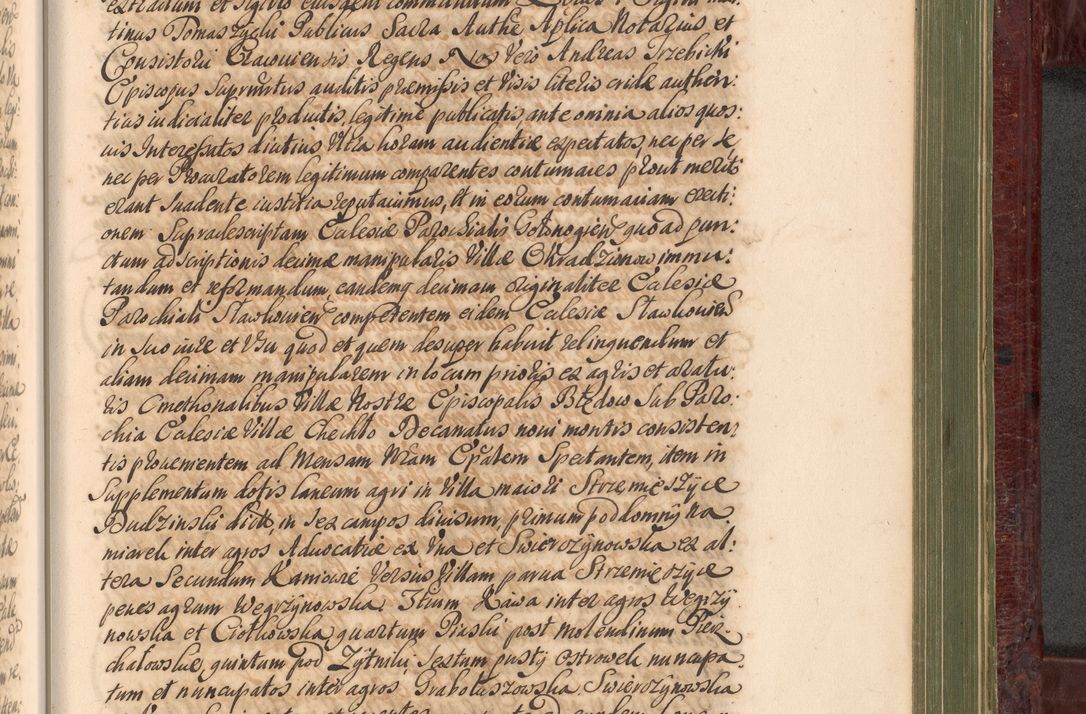 extraditum et sigillo eiusdem communitum
tinus Tomaszycki Publicus Sacra Authe Aplica Notarius et
Consistorii Cracouiensis Regens Nos Vero Andreas Trzebicki
Episcopus Suprmtus auditis præmissis et Visis literis cridæ authen:
ticis iudicialiter productis, legitime publicatis, ante omnia alios quos:
uis Interessatos diutius Vltra horam audientiæ expectatos, nec per se
nec per Procuratorem legitimum comparentes contumaces prout merit
erant Suadente iustitia reputauimus, et in eorum contumaciam erecti:
onem Supradescriptam Ecclesiæ Parochialis Golonogien quo ad pun:
ctum adscriptionis decimæ manipularis Villæ Chradzionow immu:
tandum et reformandum, eandemq decimam originaliter Ecclesiæ
Parochiali Slawkouien competentem eidem Ecclesiæ Slawkouien
in suo iure et Vsu quod et quem desuper habuit relinquendum et
aliam decimam manipularem in locum prioris ex agris et aratu:
ris Cmethonalibus Villæ Nostræ Episcopalis Błędow Sub Paro:
chia Ecclesiæ Villæ Chechło Decanatus noui montis consisten:
tis prouenientem ad Mensam Nram Epalem Spectantem, item in
Supplementum dotis laneum agri in Villa maiori Strzemięszyce
Budzinski dictt, in sex campos diuisum, primum pod lomnÿ Na
miarek inter agros Aduocatiæ ex Vna et Swierczÿnowska ex al:
tera Secundum Kamionie Versus Villam parua Strzemięszÿce
penes agrum Węgrzÿnowska, 3tium Kawa inter agros Węgrzÿ
nowska et Ciołkowska, quartum Piaski post molendinum Pierz
chałowskie, quintum pod Zÿtnikÿ Sextum pustÿ Ostrowek nuncupa
tum et nuncupatos inter agros Grabotuszowska Swierczÿnowska